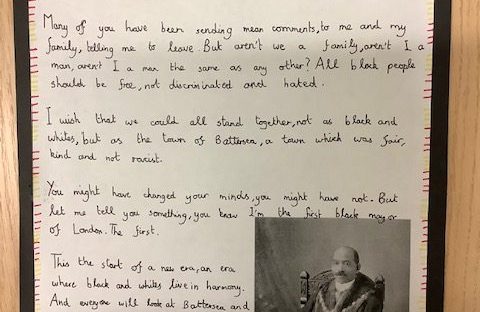 Many of you have been sending mean comments, to me and my
family, telling me to leave. But aren't we a family, aren't I a
man, aren't I a man the same as any other? All black people
should be free, not discriminated and hated.
I wish that we could all stand together, not as black and
whites, but as the town of Battersea, a town which was fair,
kind and not racist.
You might have changed your minds, you might have not. But
let me tell you something, you know I'm the first black mayor
of London. The first.
This the start of a new era, an era
where black and whites live in harmony.
And everyone will look at Battersea and